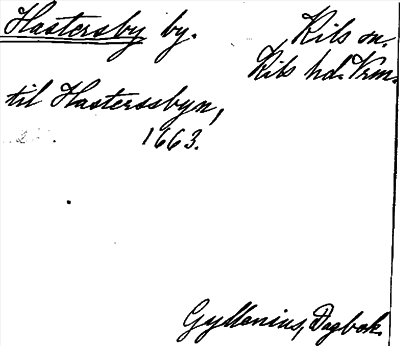 Hastersby by. Kils sn.
Kils hd. Vrm.
til Hasterssbyn,
1663.
Gyllenius, Dagbok.